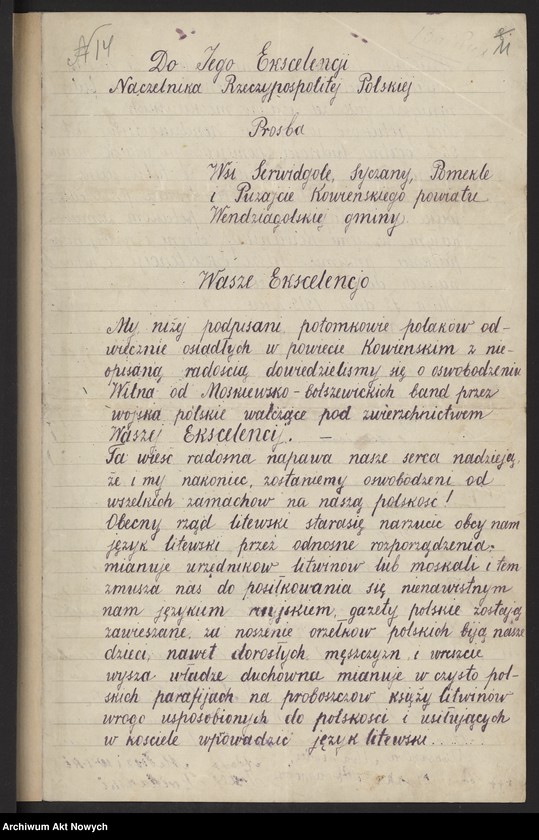 N 14
11
Do Jego Ekscelencji
Naczelnika Rzeczypospolitej Polskiej
Prosba
Wsi Serwidgole, Syczany, Pomekle
i Puzajcie Kowieńskiego powiatu
Wendziagolskiej gminy
Wasze Ekscelencjo
My niżej podpisani potomkowie polaków od-
wiecznie osiadłych w powiecie Kowienskim z nie-
opisaną radością dowiedzielismy się o oswobodzeniu
Wilna od Moskiewsko-bolszewickich band przez
wojska polskie walczące pod zwierzchnictwem
Waszej Ekscelencij. —
Ta wieść radosna napawa nasze serca nadzieją,
że i my nakoniec, zostaniemy oswobodzeni od
wszelkich zamachow na naszą polskość!
Obecny rząd litewski starasię narzucic obcy nam
język litewski przez odnosne rozporządzenia.
mianuje urzędników litwinow lub moskali i tem
zmusza nas do posiłkowania się nienawistnym
nam językum rusjskiem, gazety polskie zostają
zawieszane, za noszenie orzełków polskich biją nasze
dzieci, nawet dorosłych męszczyzn, i wreszcie
wysza władze duchowna mianuje w czysto pol-
skich parafijach na proboszczow księży litwinów
wrogo usposobionych do polskosci i usiłujących
w kosciele wpowadzić język litewski......
Archiwum Akt Nowych